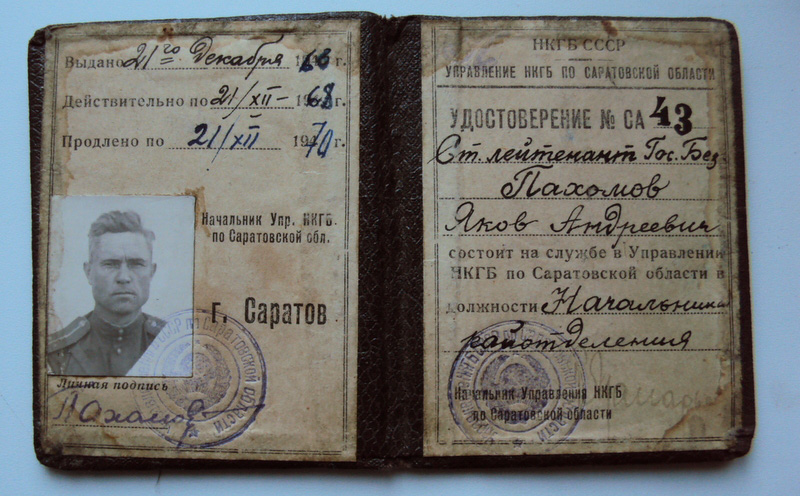 Выдано 21го Декабря 1966 г.
Действительно по 21/XII – 1968 г.
Продлено по 21/XII 1970 г.
Начальник Упр. НКГБ
по Саратовской обл.
г. Саратов
Личная подпись
Пахомов
НКГБ СССР
УПРАВЛЕНИЕ НКГБ ПО САРАТОВСКОЙ ОБЛАСТИ
УДОСТОВЕРЕНИЕ № СА 43
Ст. лейтенант Гос. Без.
Пахомов
Яков Андреевич
состоит на службе в Управлении
НКГБ по Саратовской области в
должности Начальника
райотделения
Начальник Управления НКГБ
по Саратовской области